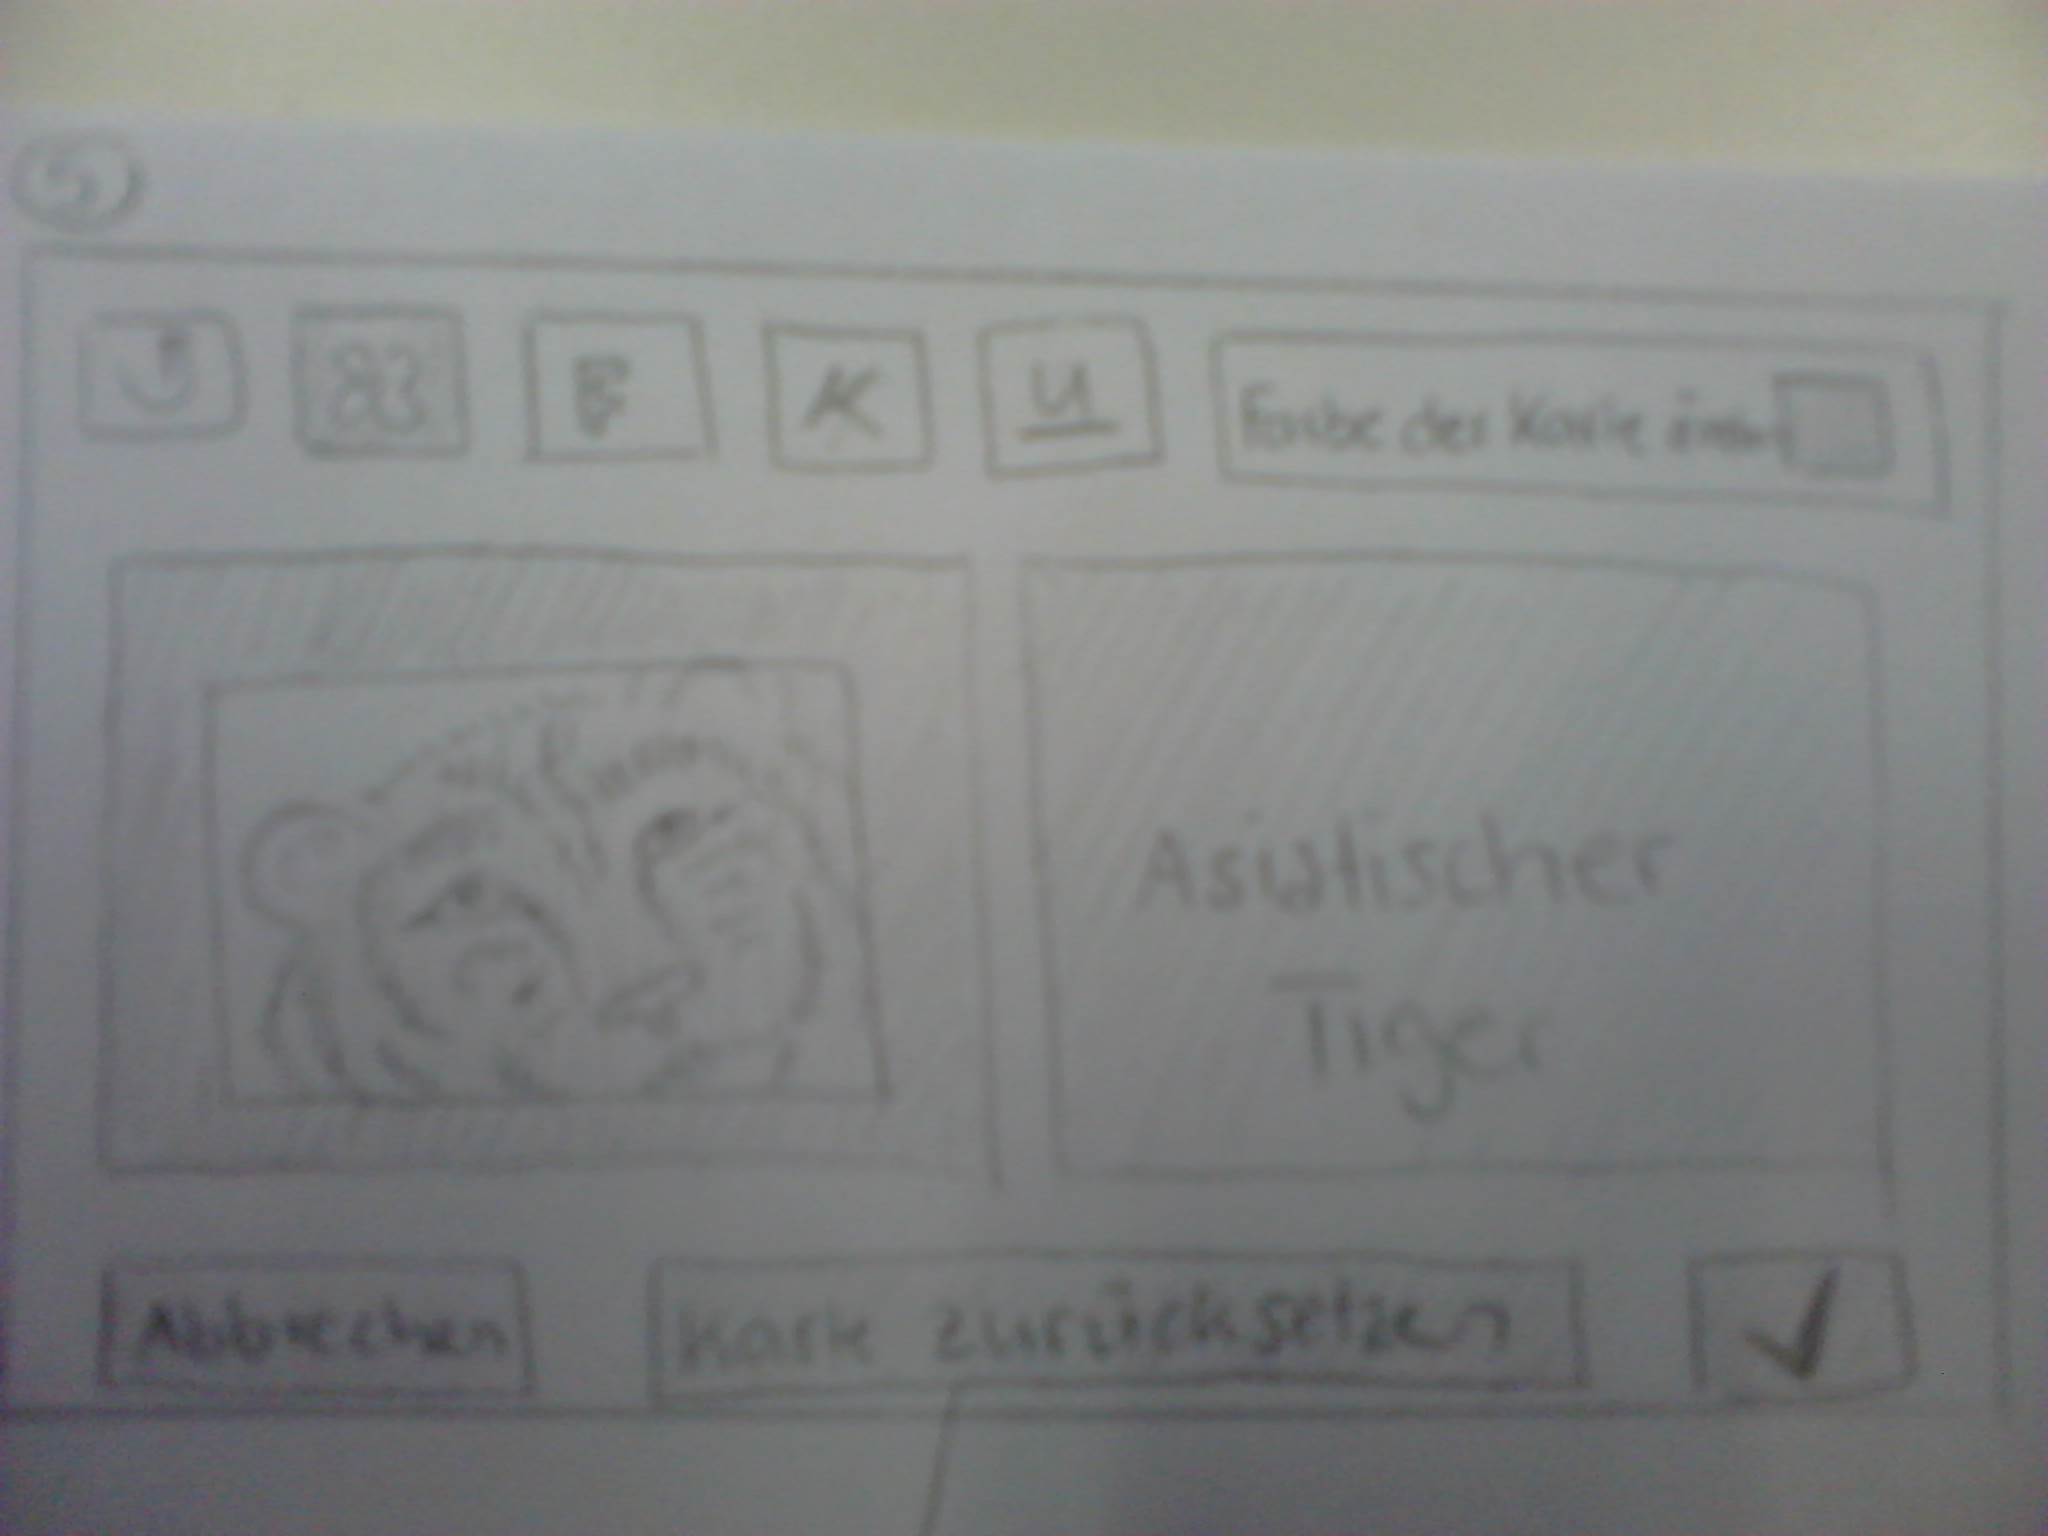 5
F K U Farbe der Karte
Asiatischer
Tiger
Abbrechen Karte zurücksetzen